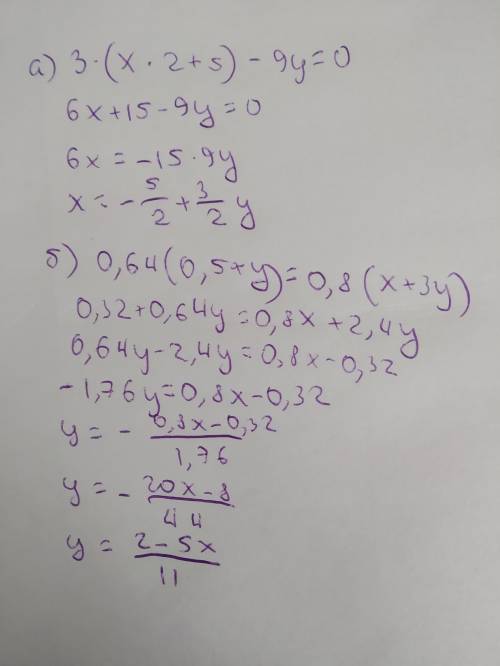 а) 3·(x·2+5) - 9y=0
6x+15-9y=0
6x=-15·9y
x=-5/2+3/2 y
б) 0,64(0,5+y)=0,8(x+3y)
0,32+0,64y=0,8x+2,4y
0,64y-2,4y=0,8x-0,32
-1,76y=0,8x-0,32
y=-(0,8x-0,32)/1,76
y=-(20x-8)/44
y=(2-5x)/11